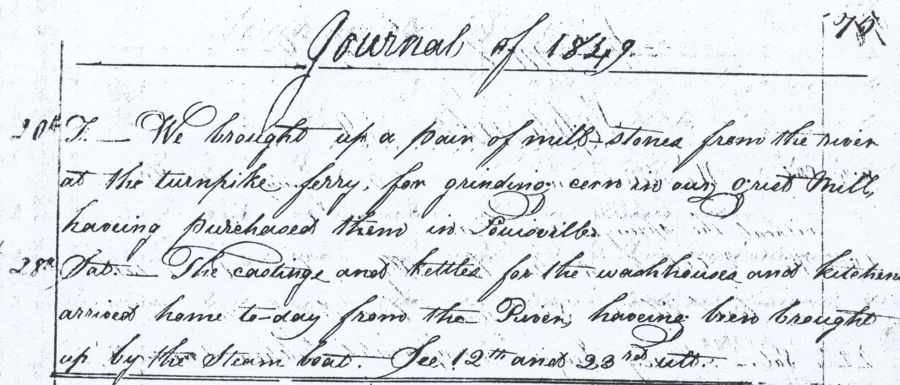 Journal of 1849.
75
20th T. — We brought up a pair of mill-stones from the river
at the turnpike ferry, for grinding corn in our Grist Mill,
having purchased them in Louisville.
28th Sat. — The castings and kettles for the washhouses and kitchens
arrived home to-day from the River, having been brought
up by the Steam boat. See 12th and 23rd ult.